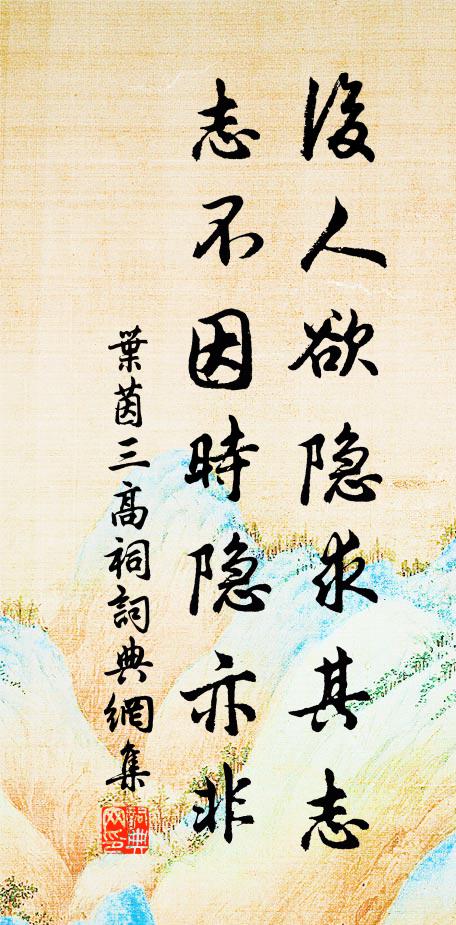 後人欲隐求其志
志不因時隐亦非
葉茵三高祠詞典網集
詞典
网印